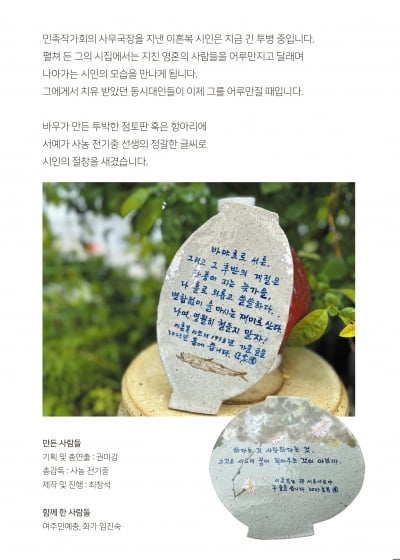 민족작가회의 사무국장을 지낸 이흔복 시인은 지금 긴 투병 중입니다.
펼쳐 든 그의 시집에서는 지친 영혼의 사람들을 어루만지고 달래며
나아가는 시인의 모습을 만나게 됩니다.
그에게서 치유 받았던 동시대인들이 이제 그를 어루만질 때입니다.
바우가 만든 투박한 점토판 혹은 항아리에
서예가 사농 전기중 선생의 정갈한 글씨로
시인의 절창을 새겼습니다.
바야흐로 서른,
그리고 그 후반의 계절은
단풍이 지는 늦가을,
나 홀로 외롭고 쓸쓸하다.
별일없이 술 마시는 재미로 산다
나여, 영원히 철들지 말자!
이흔복 시 1998년 가을
2023년 봄에 씁니다
사랑한다는 것
그것은 서로의 꿈이 되어주는 것이 아닐까.
만든 사람들
기획 및 총연출 : 권미강
총감독 : 사농 전기중
제작 및 진행 : 최창석
함께 한 사람들
여주민예총, 화가 임진숙